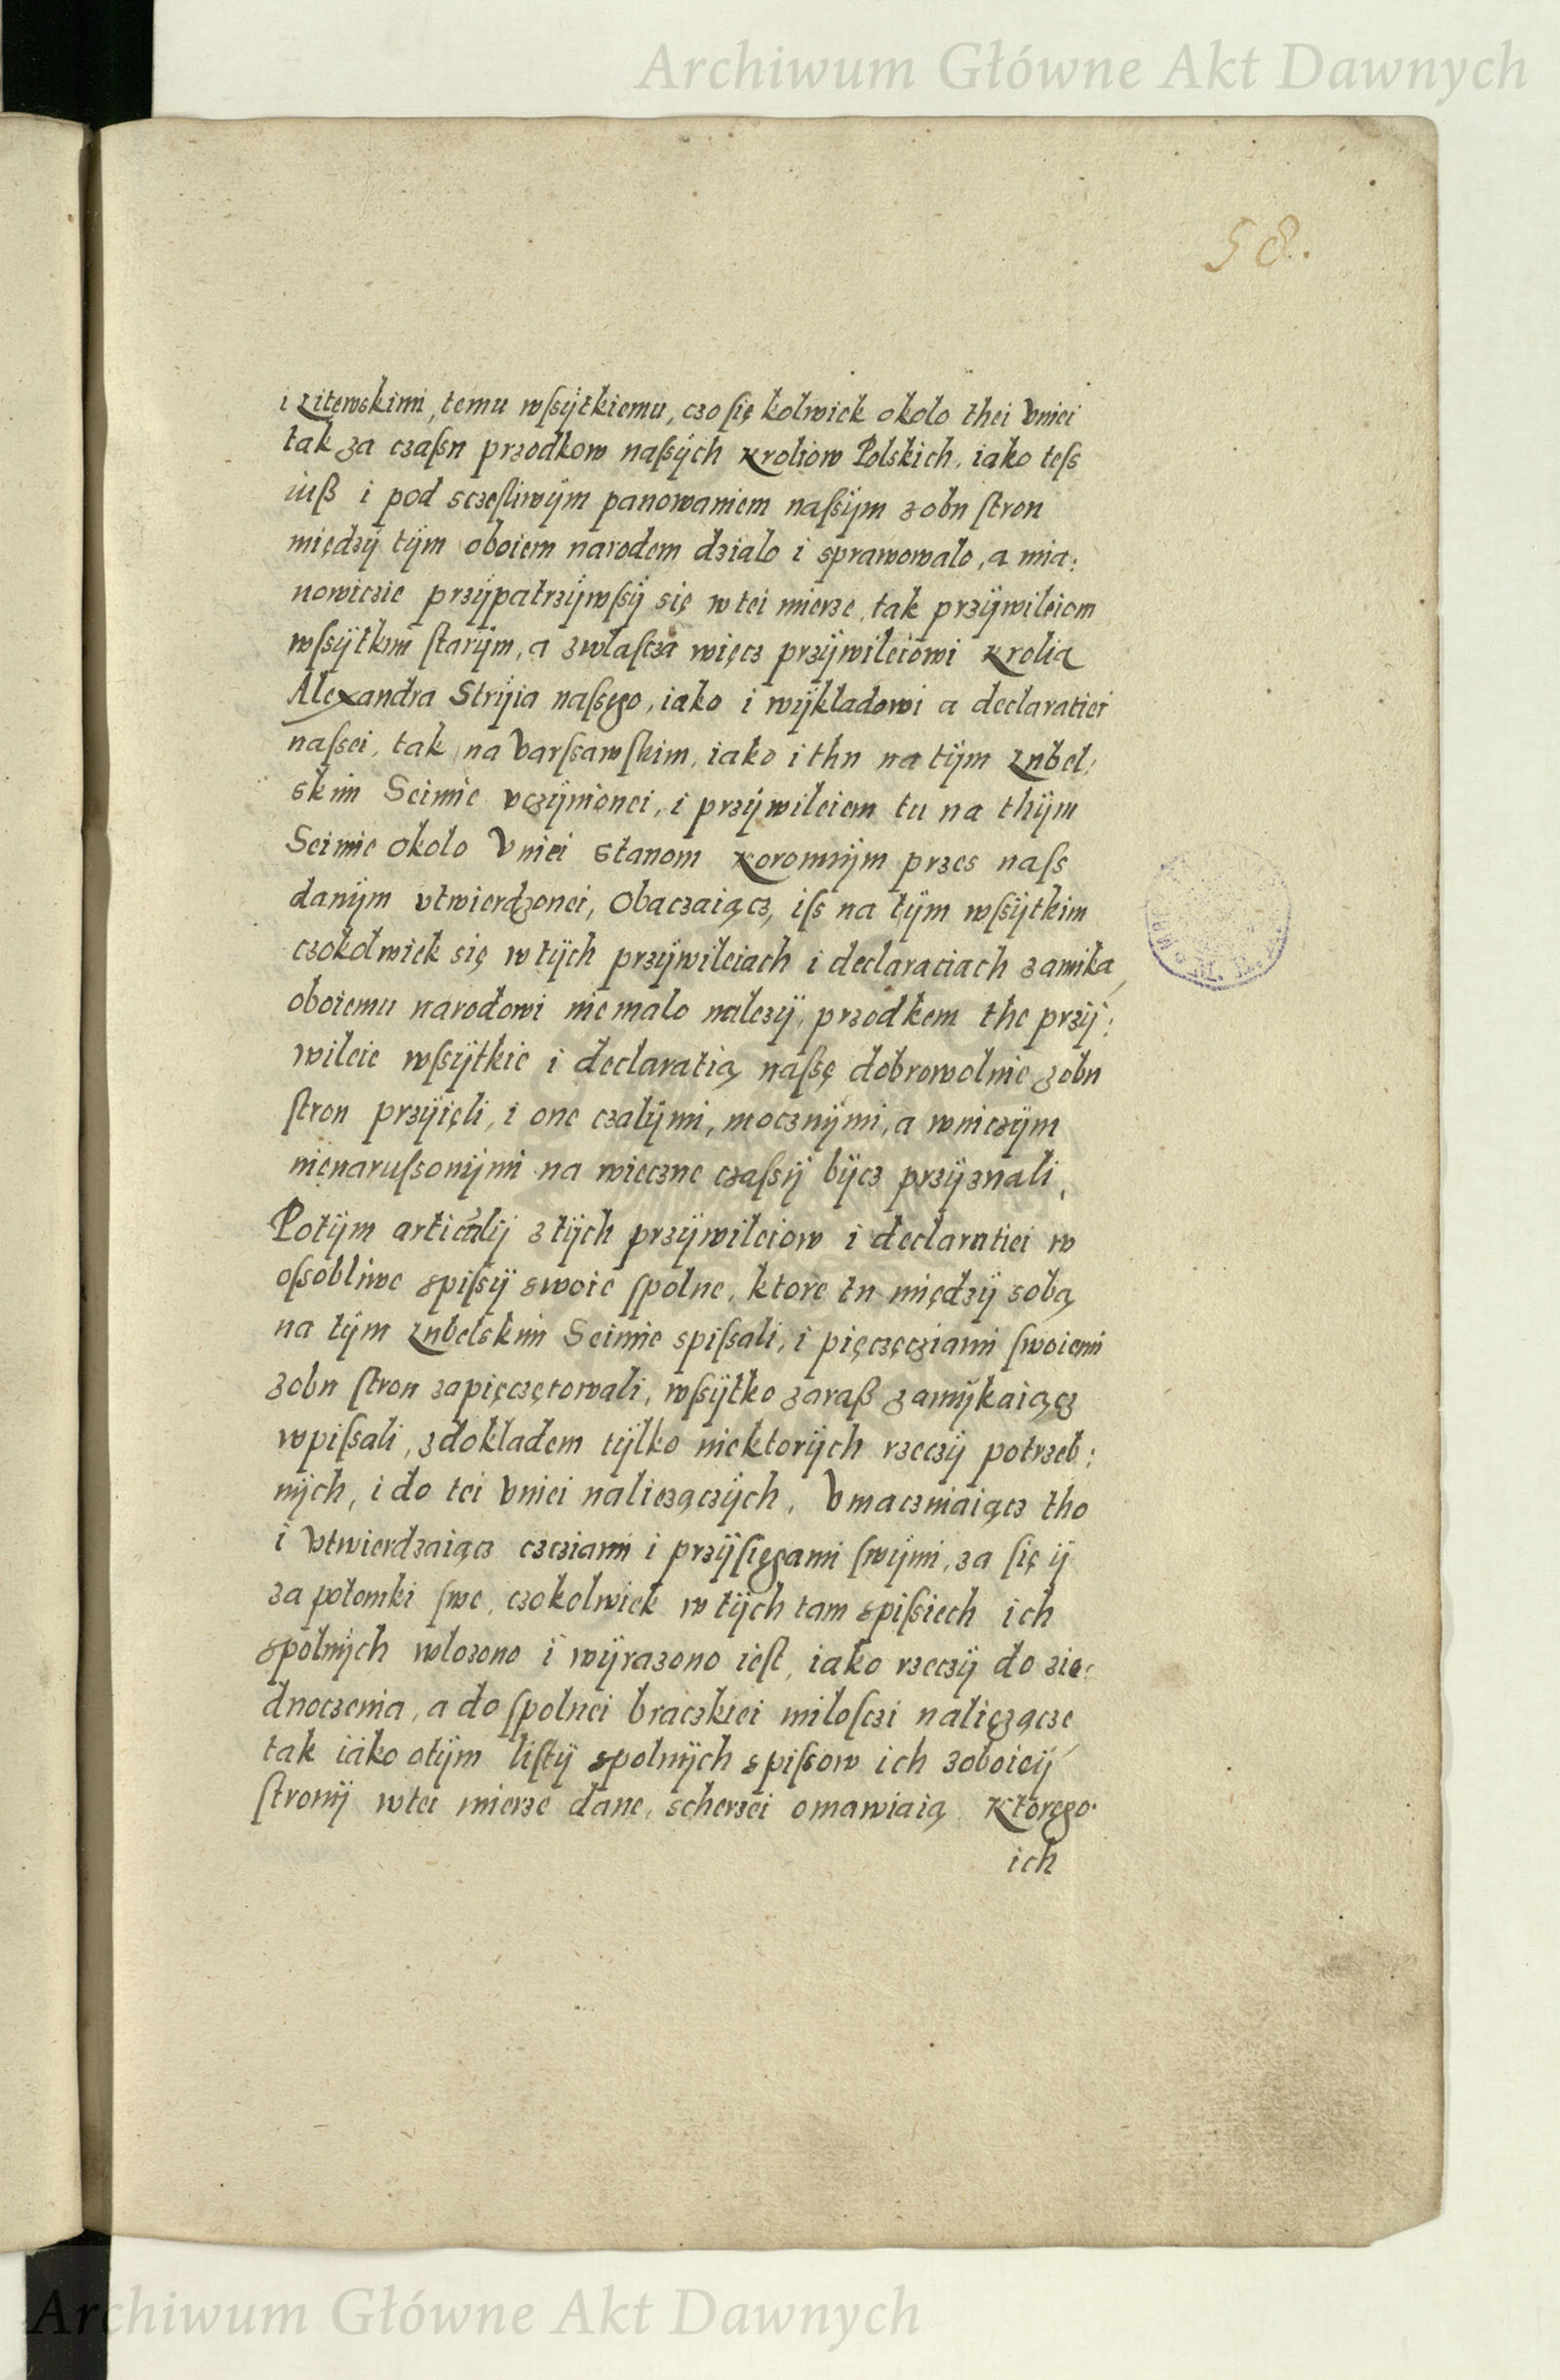 Archiwum Główne Akt Dawnych
58.
i Litewskimi, temu wſsÿtkiemu, czo ſię kolwiek okolo thei Vniei
tak za czaſsu przodkow naſsÿch Kroliow Polskich, iako teſs
iuß i pod sczeſliwÿm panowaniem naſsÿm z obu ſtron
międzÿ tÿm oboiem narodem dzialo i sprawowalo, a mia:
nowiczie przÿpatrzÿwſsÿ się w tei mierze, tak przÿwileiom
wſsÿtkim ſtarÿm, a zwlaſcza więcz przÿwileiowi Krolia
Alexandra Strÿia naſsego, iako i wÿkladowi a declaratiei
naſsei, tak na Varſsawſkim, iako i thu na tÿm Lubel:
skim Seimie vczÿnionei, i przÿwileiem tu na thÿm
Seimie okolo Vniei Stanom Koronnÿm przes naſs
danÿm vtwierdzonei, Obaczaiącz, iſs na tÿm wſsÿtkim
czokolwiek się w tÿch przÿwileiach i declaraciach zamika,
oboiemu narodowi niemalo nalezÿ, przodkem the przÿ:
wileie wſsÿtkie i declaratią naſsę dobrowolnie z obu
ſtron przÿięli, i one czalÿmi, mocznÿmi, a wniczÿm
nienaruſsonÿmi na wieczne czaſsÿ bÿcz przÿznali,
Potÿm articulÿ z tÿch przÿwileiow i declaratiei w
oſsobliwe spiſsÿ swoie ſpolne, ktore tu międzÿ sobą
na tÿm Lubelskim Seimie spiſsali, i pięczęcziami ſwoiemi
z obu ſtron zapięczętowali, wſsÿtko zaraß zamÿkaiącz
wpiſsali, z dokladem tÿlko niektorÿch rzeczÿ potrzeb:
nÿch, i do tei Vniei naliezączÿch, Vmaczniaiącz tho
i Vtwierdzaiącz czcziami i przÿſięgami ſwÿmi, za ſię ÿ
za potomki ſwe, czokolwiek w tÿch tam spiſsiech ich
spolnÿch wlozono i wÿrazono ieſt, iako rzeczÿ do zie:
dnoczenia, a do ſpolnei braczkiei miloſczi nalięzącze
tak iako otÿm liſtÿ spolnÿch spiſsow ich z oboieÿ
ſtronÿ w tei mierze dane, scherzei omawiaią. Ktorego
ich
Archiwum Główne Akt Dawnych